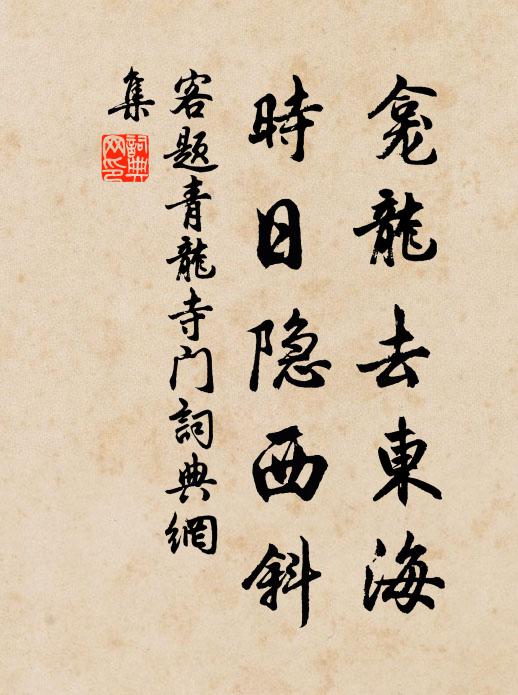 龛龍去東海
時日隐西斜
客题青龍寺门詞典網
集
詞典
网印